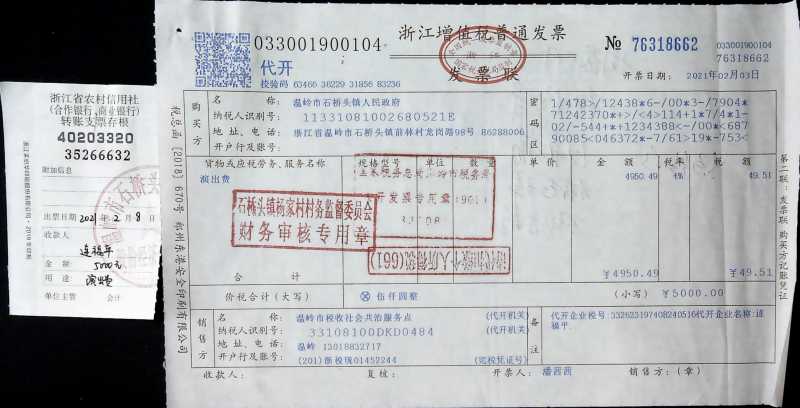 浙江省农村信用社
(合作银行、商业银行)
转账支票存根
40203320
35266632
附加信息
出票日期 2021年2月8日
收款人
连福平
金额 5000元
用途 演出费
单位主管 会计
税总函[2018]670号 郑州东港安全印刷有限公司
033001900104
代开
校验码 63466 36229 31856 83236
浙江增值税普通发票
发票联
№ 76318662
033001900104
76318662
开票日期: 2021年02月03日
购买方
名称: 温岭市石桥头镇人民政府
纳税人识别号: 11331081002680521E
地址、电话: 浙江省温岭市石桥头镇前林村龙岗路98号 86288006
开户行及账号:
密码区
1/478>/12438*6-/00*3-/7904*
71242370*+>/<4>114+1*7/4*1-
02/-544+*+1234388<-/00*<687
90085<046372*-7/61>19*-753<
货物或应税劳务、服务名称 规格型号 单位 数量 单价 金额 税率 税额
演出费 4950.49 1% 49.51
石桥头镇杨家村村务监督委员会
财务审核专用章
合计 ¥4950.49 ¥49.51
价税合计(大写) ⊗ 伍仟圆整 (小写) ¥5000.00
销售方
名称: 温岭市税收社会共治服务点 (代开机关)
纳税人识别号: 33108100DKD0484 (代开机关)
地址、电话: 温岭 13018832717
开户行及账号: (201)浙税现01452244 (完税凭证号)
备注
代开企业税号:332623197408240516代开企业名称:连
福平
收款人: 复核: 开票人: 潘茜茜 销售方:(章)
第二联:发票联 购买方记账凭证